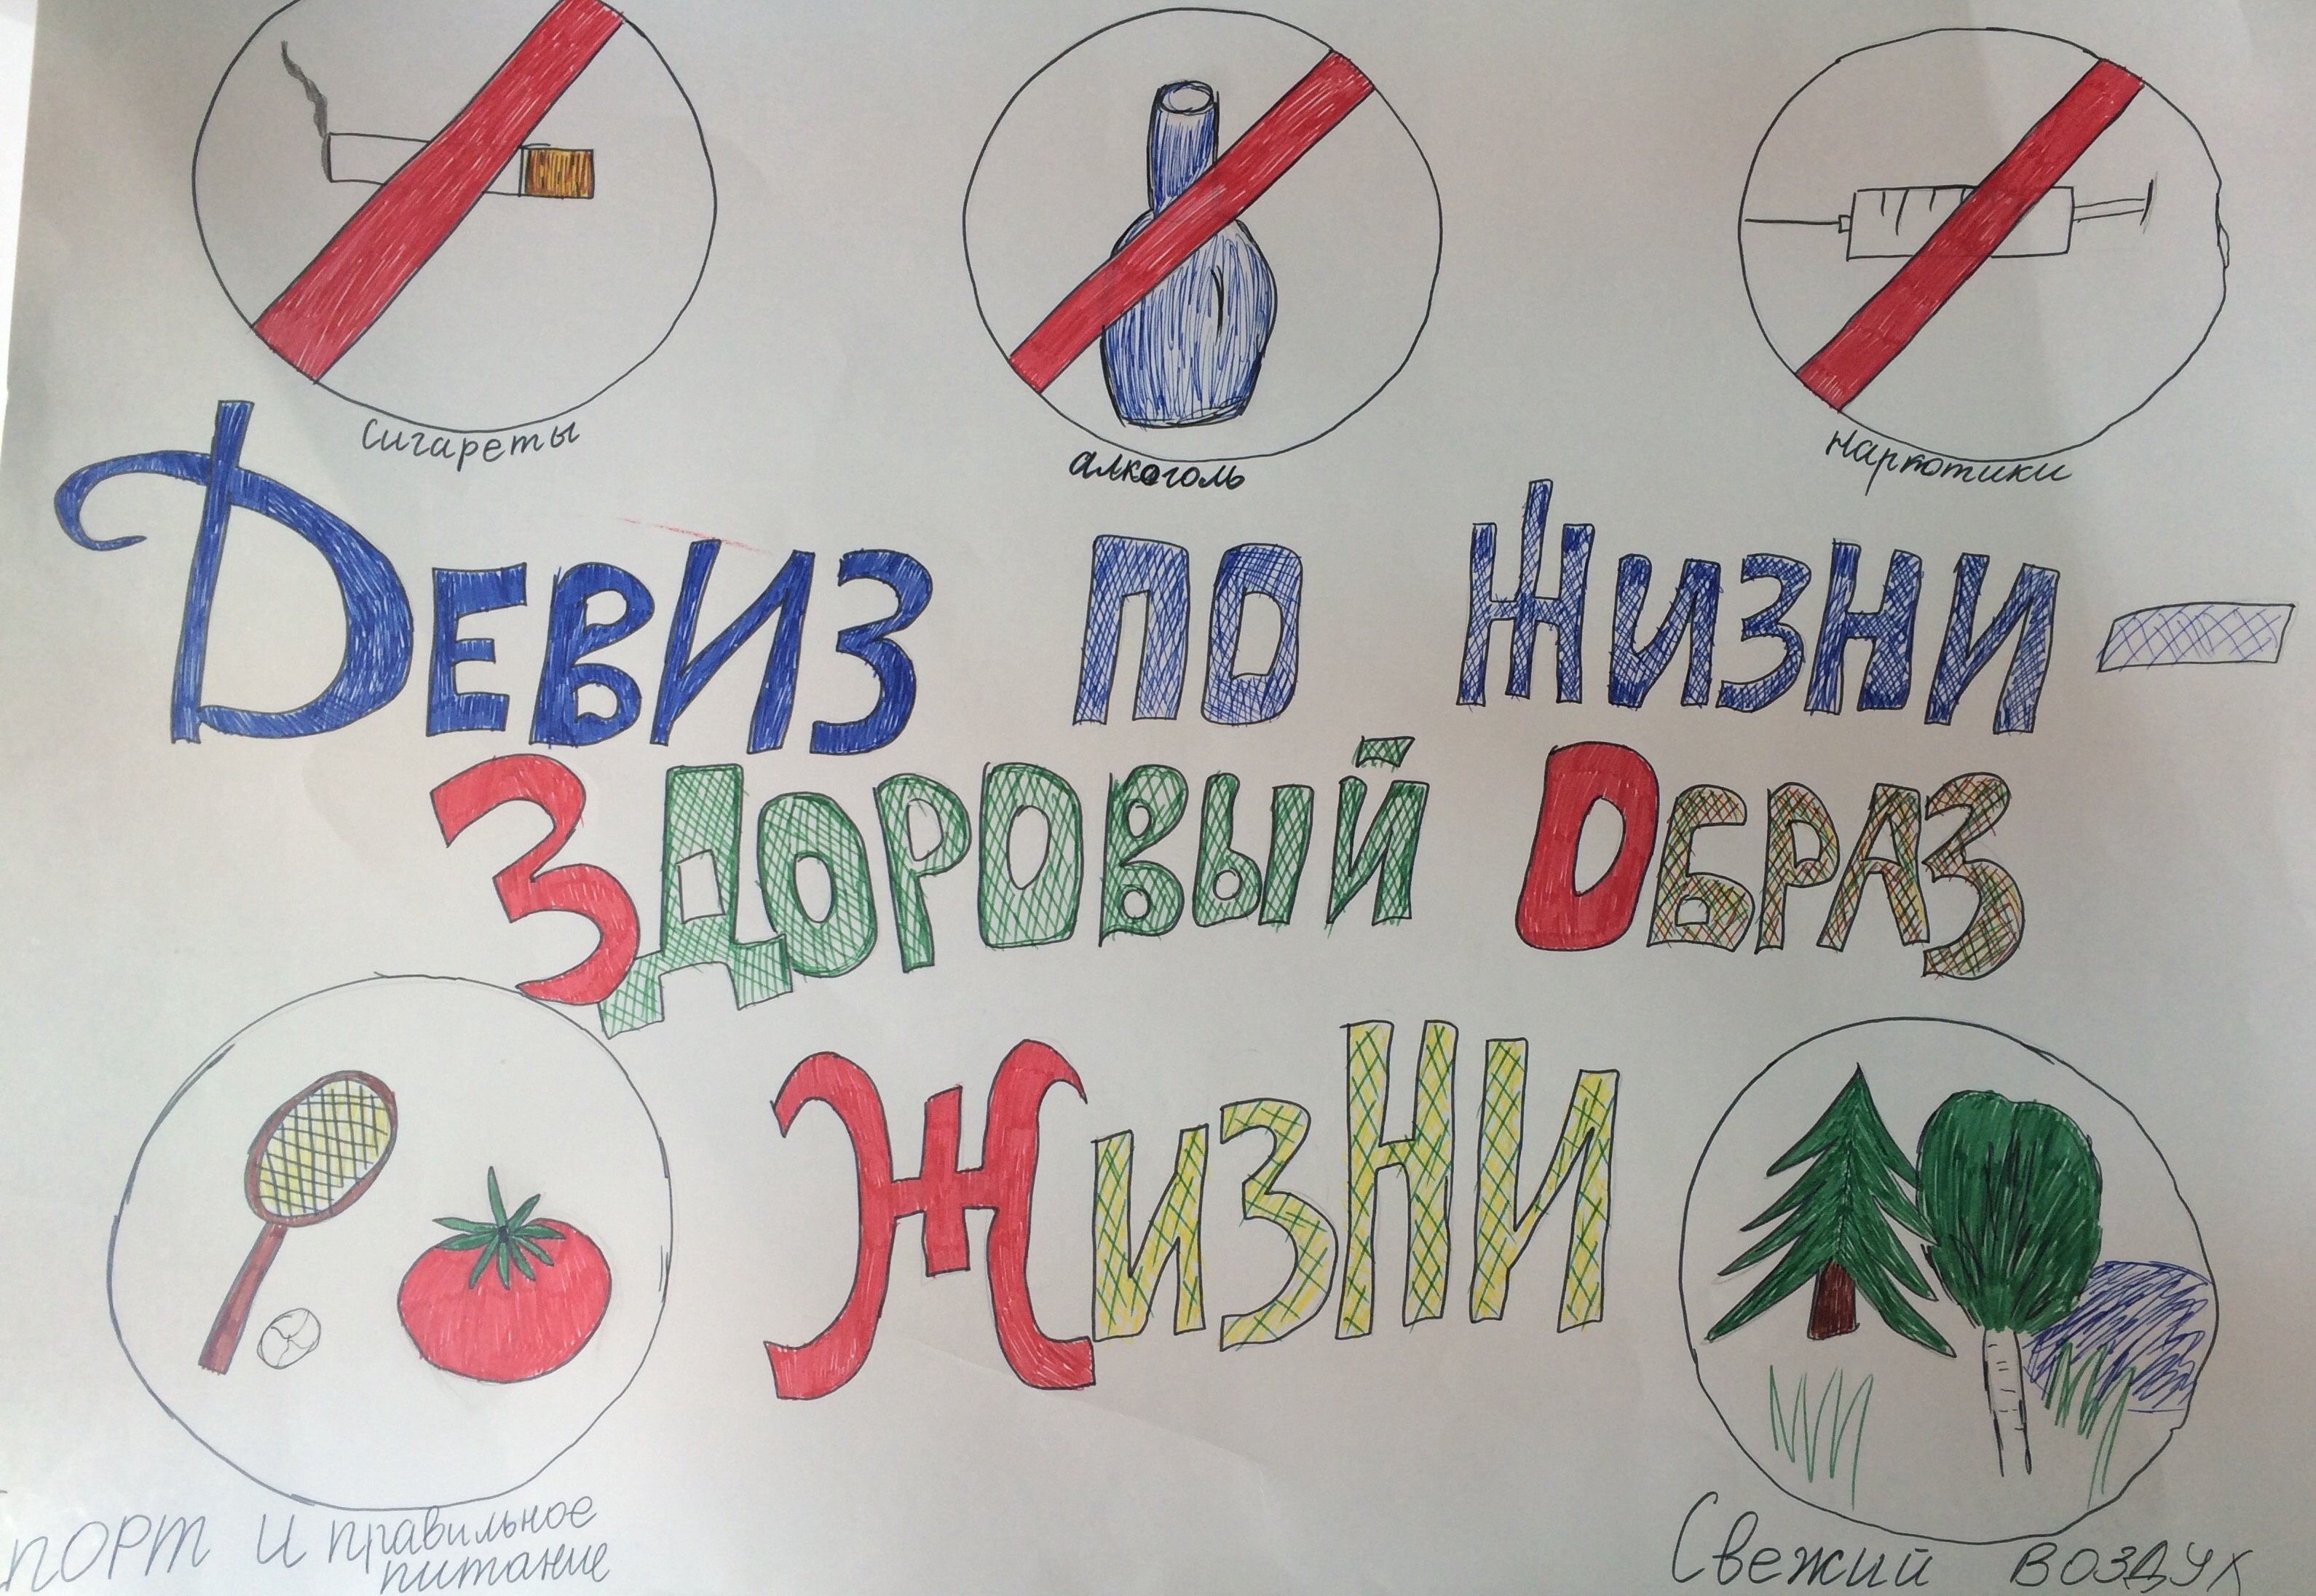 Сигареты
алкоголь
Наркотики
ДЕВИЗ ПО ЖИЗНИ –
ЗДОРОВЫЙ ОБРАЗ
ЖИЗНИ
Спорт и правильное
питание
Свежий воздух